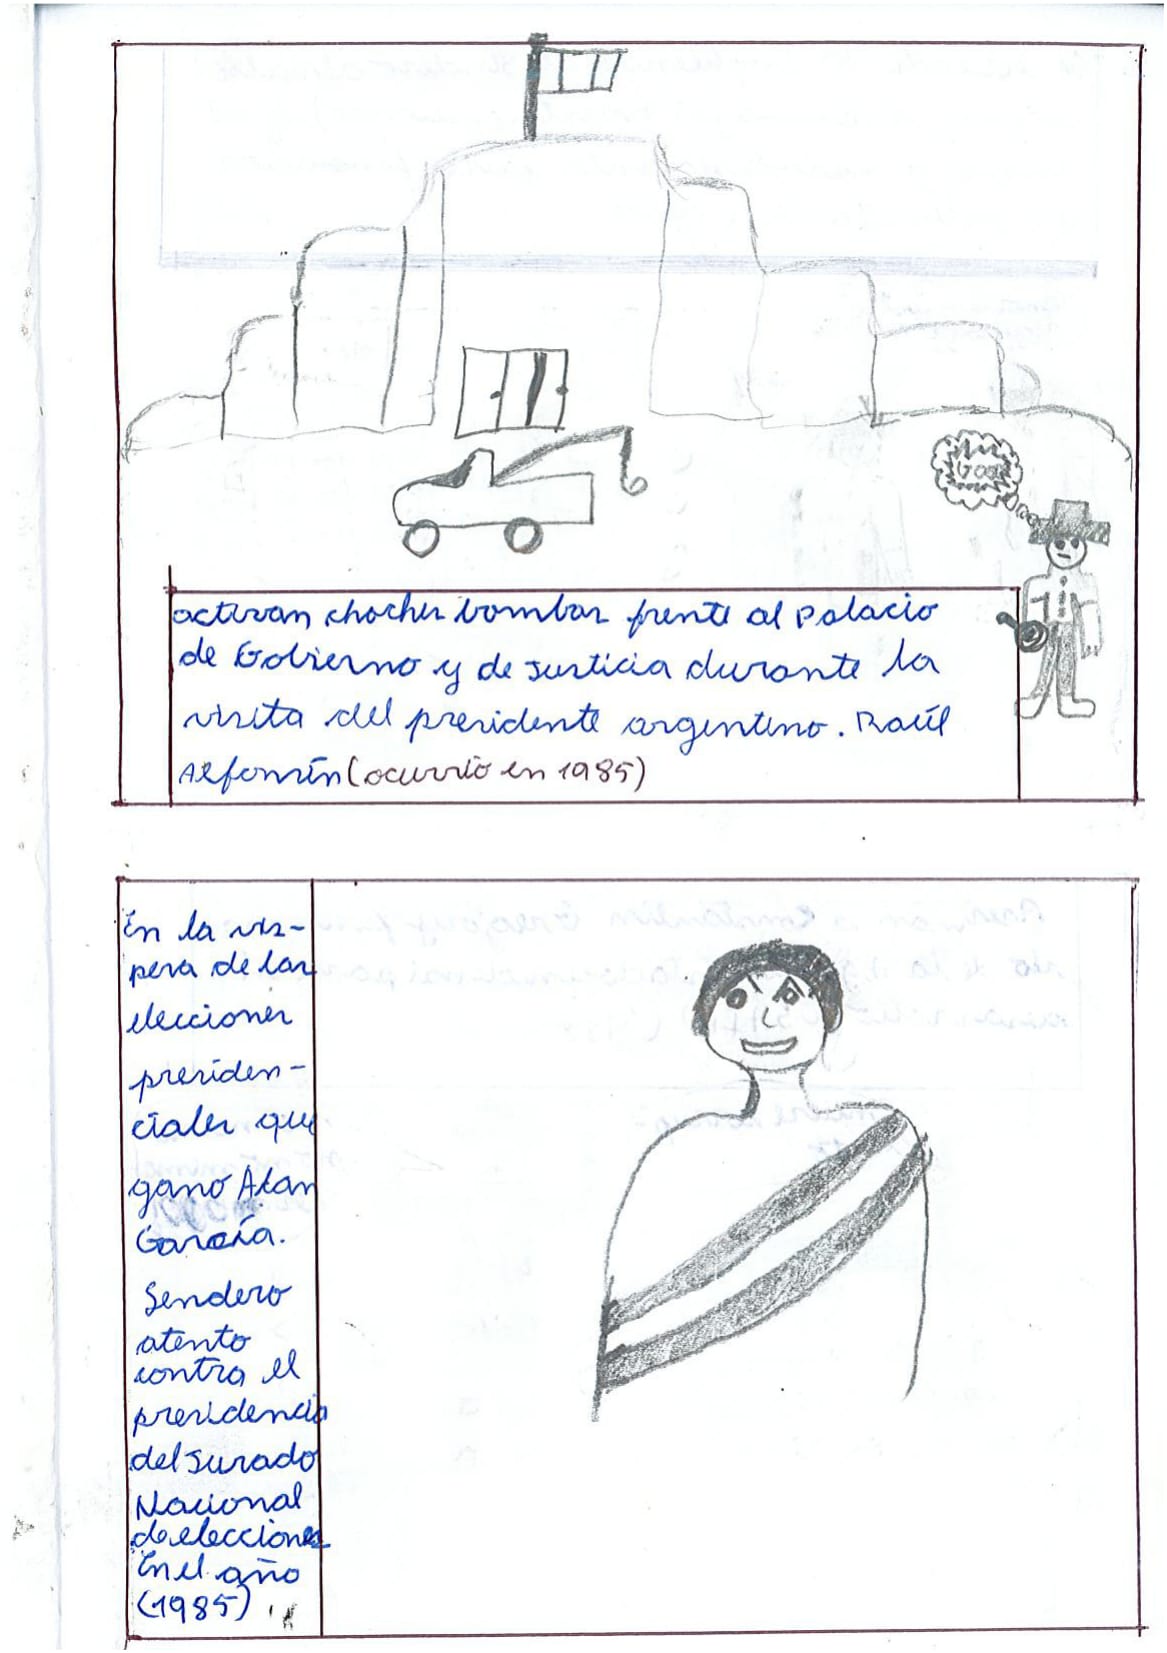 activan choches bombas frente al Palacio
de Gobierno y de Justicia durante la
visita del presidente argentino. Raúl
Alfonsín (ocurrio en 1985)
En la vis-
pera de las
elecciones
presiden-
ciales que
gano Alan
García.
Sendero
atento
contra el
presidencia
del Jurado
Nacional
de elecciones
En el año
(1985)